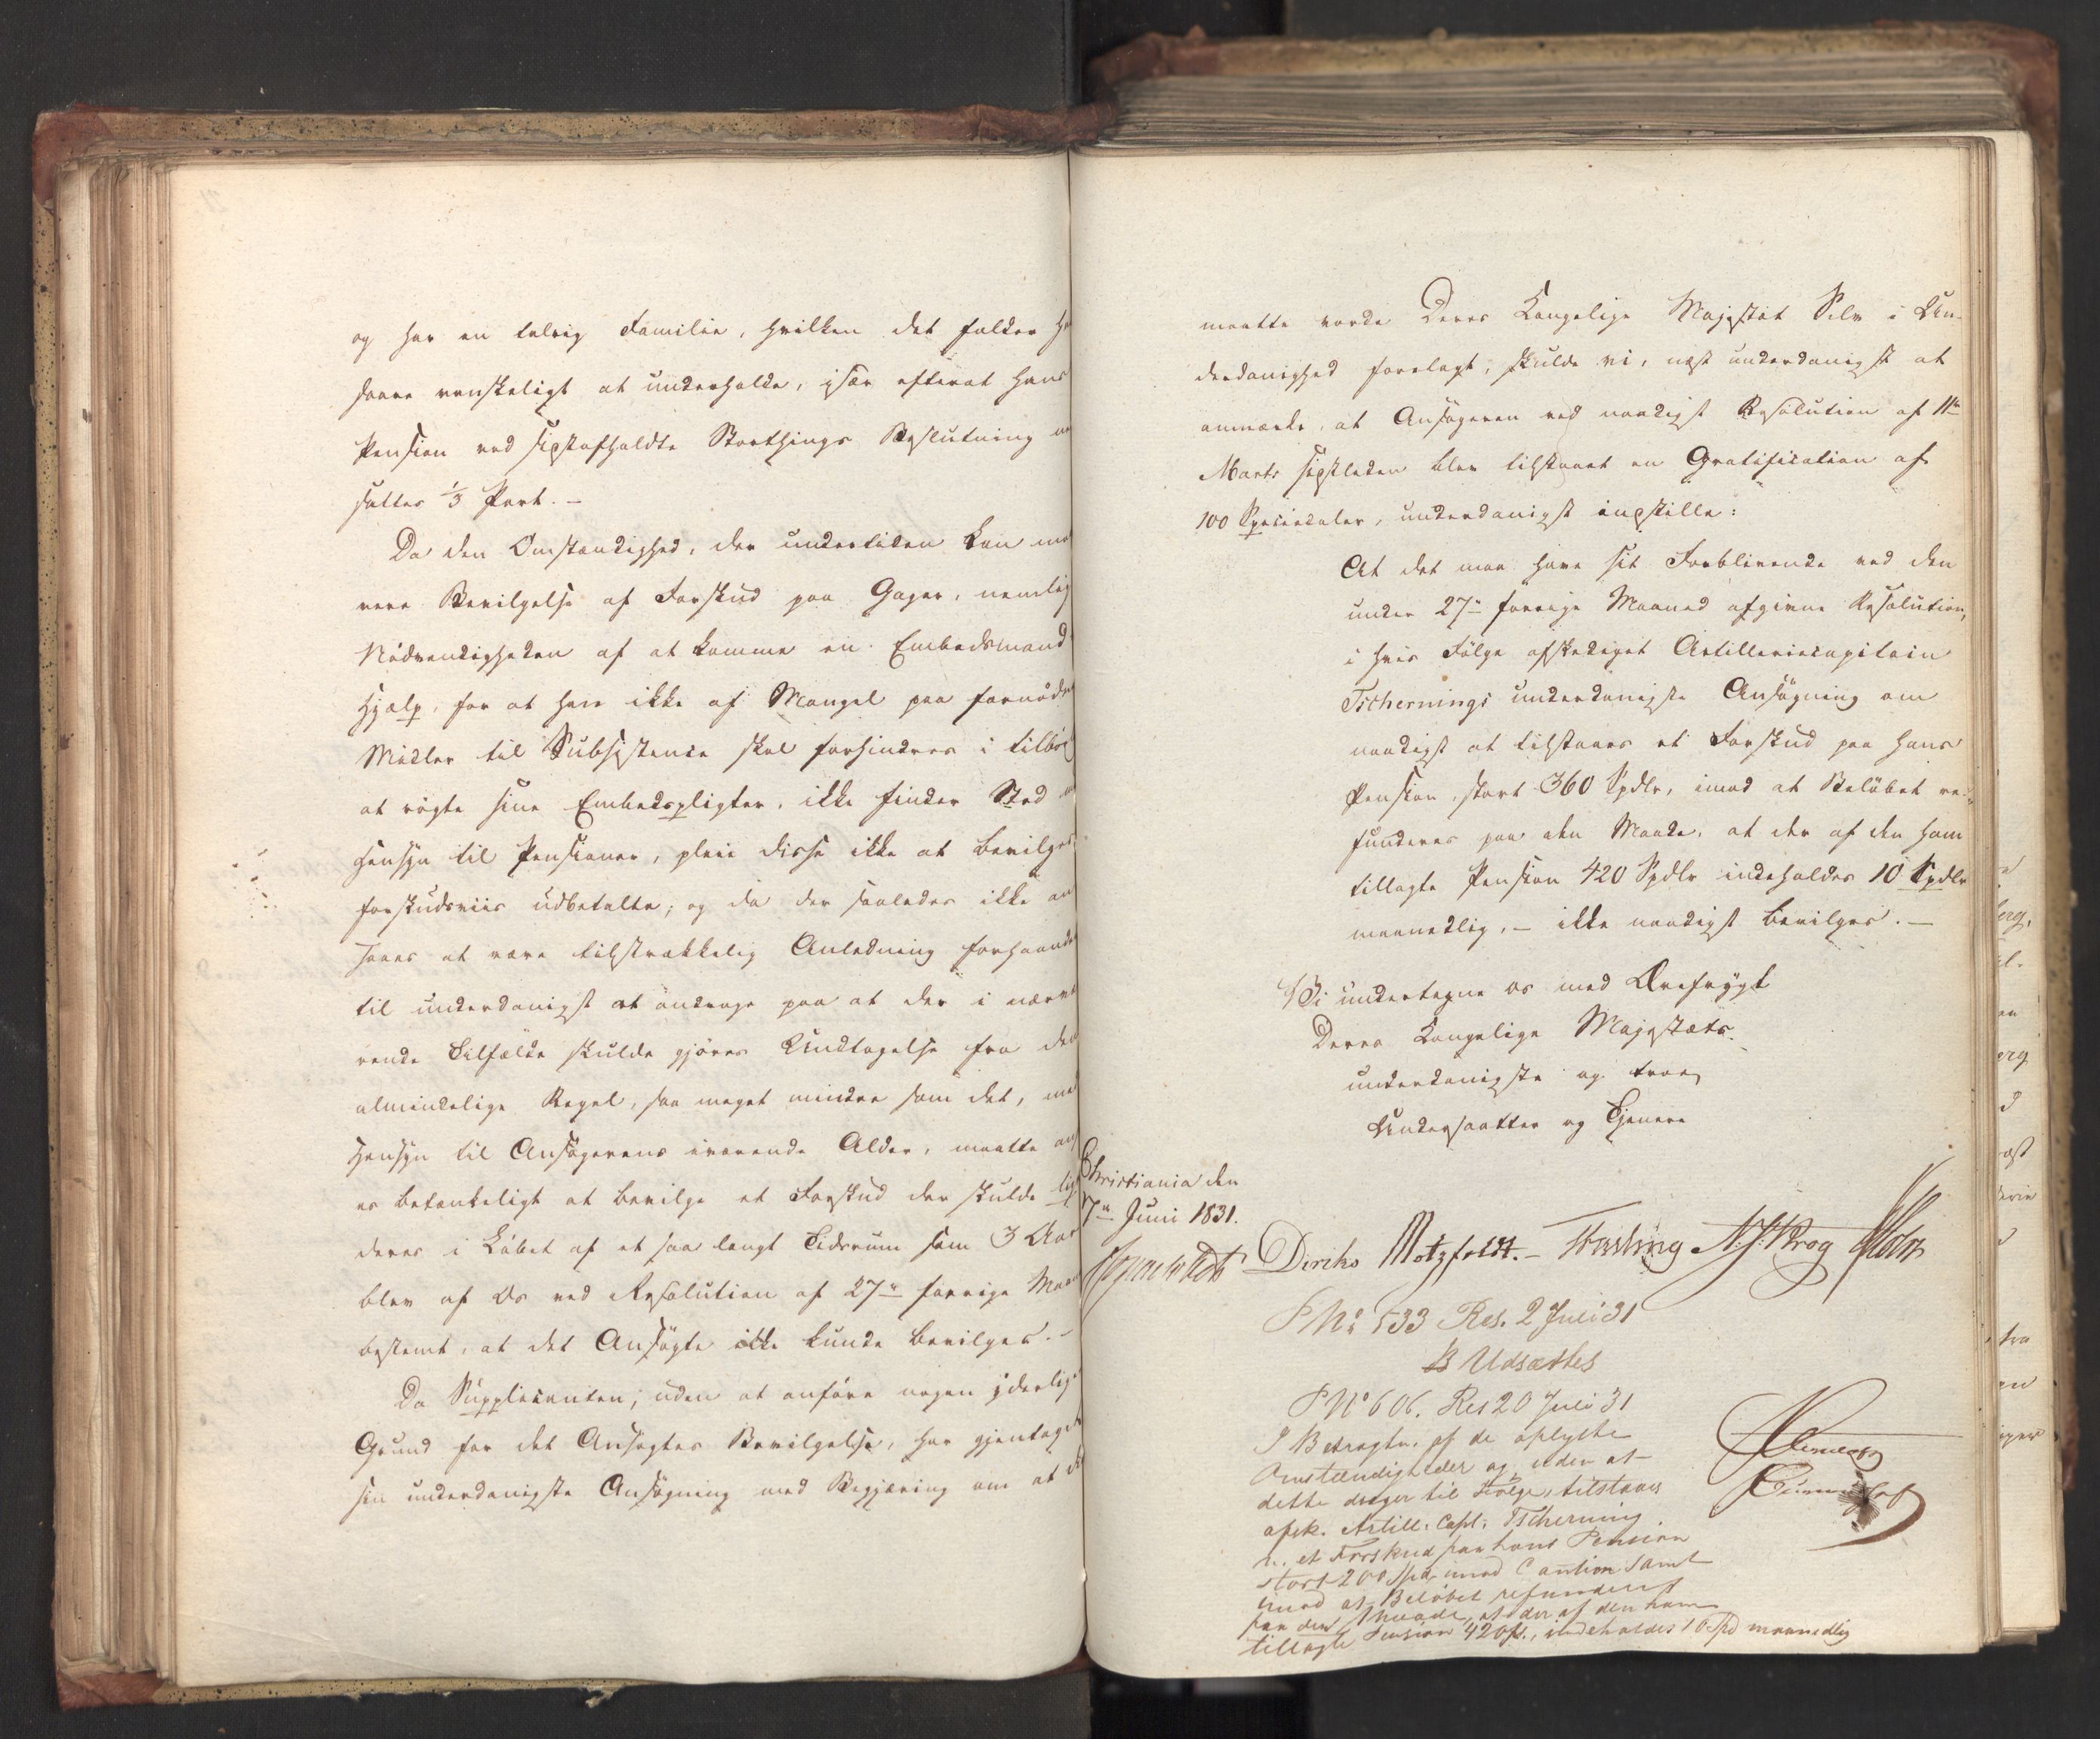 og har en talrig Familie, hvilken det falder
saare vanskeligt at underholde, især efterat hans
Pension ved sidstafholdte Storthings Beslutning
sattes 1/3 Part. –
Da den Omstændighed, der undertiden kan mo
vere Bevilgelse af Forskud paa Gager, nemlig
Nödvendigheden af at komme en Embedsmand
Hjælp, for at han ikke af Mangel paa fornödne
Midler til Subsistence skal forhindres i tilbör
at rögte sine Embedspligter, ikke finder Sted
Hensyn til Pensioner, pleie disse ikke at bevilges
forskudsviis udbetalte; og da der saaledes ikke an
saaes at være tilstrækkelig Anledning forhaanden
til underdanigst at andrage paa at der i nærvæ
rende Tilfælde skulde gjöres Undtagelse fra den
almindelige Regel, saa meget mindre som det, med
Hensyn til Ansögerens Alder, maatte an
es betænkeligt at bevilge et Forskud der skulde liqvi
deres i Löbet af et saa langt Tidsrum som 3 Aar
blev af Os ved Resolution af 27de forrige Maan
bestemt, at det Ansögte ikke kunde bevilges. –
Da Supplicanten, uden at anföre nogen yderlige
Grund for det Ansögtes Bevilgelse, har gjentaget
sin underdanigste Ansögning med Begjæring om at
maatte vorde Deres Kongelige Majestæt Selv i Un-
derdanighed forelagt, skulde vi, næst underdanigst at
anmærke, at Ansögeren ved naadigst Resolution af 11te
Marts sidstleden blev tilstaaet en Gratification af
100 Speciedaler, underdanigst indstille:
At det maa have sit Forblivende ved den
under 27de forrige Maaned afgivne Resolution,
i hvis Fölge afskediget Artilleriecapitain
Tschernings underdanigste Ansögning om
naadigst at tilstaaes et Forskud paa hans
Pension, stort 360 Spdlr, imod at Belöbet re-
funderes paa den Maade, at der af den ham
tillagte Pension 420 Spdlr indeholdes 10 Spdlr
maanedlig, – ikke naadigst bevilges. –
Vi undertegne os med Ærefrygt
Deres Kongelige Majestæts
underdanigste og troe
Undersaatter og Tjenere
Christiania den
7de Juni 1831.
Diriks Motzfeldt. – Fasting N. J. Krog Holst
P No 533 Res. 2 Juli 31
Udsættes
P No 606. Res 20 Juli 31
I Betragtn. af de oplyste
Omstændigheder og uden at
dette drager til Fölge, tilstaaes
afsk. Artill. Capt. Tscherning
n. et Forskud paa hans Pension
stort 200 Spd. imod Caution samt
imod at Belöbet refunderes
paa den Maade, at der af den ham
tillagte Pension 420 Spd., indeholdes 10 Spd maanedlig